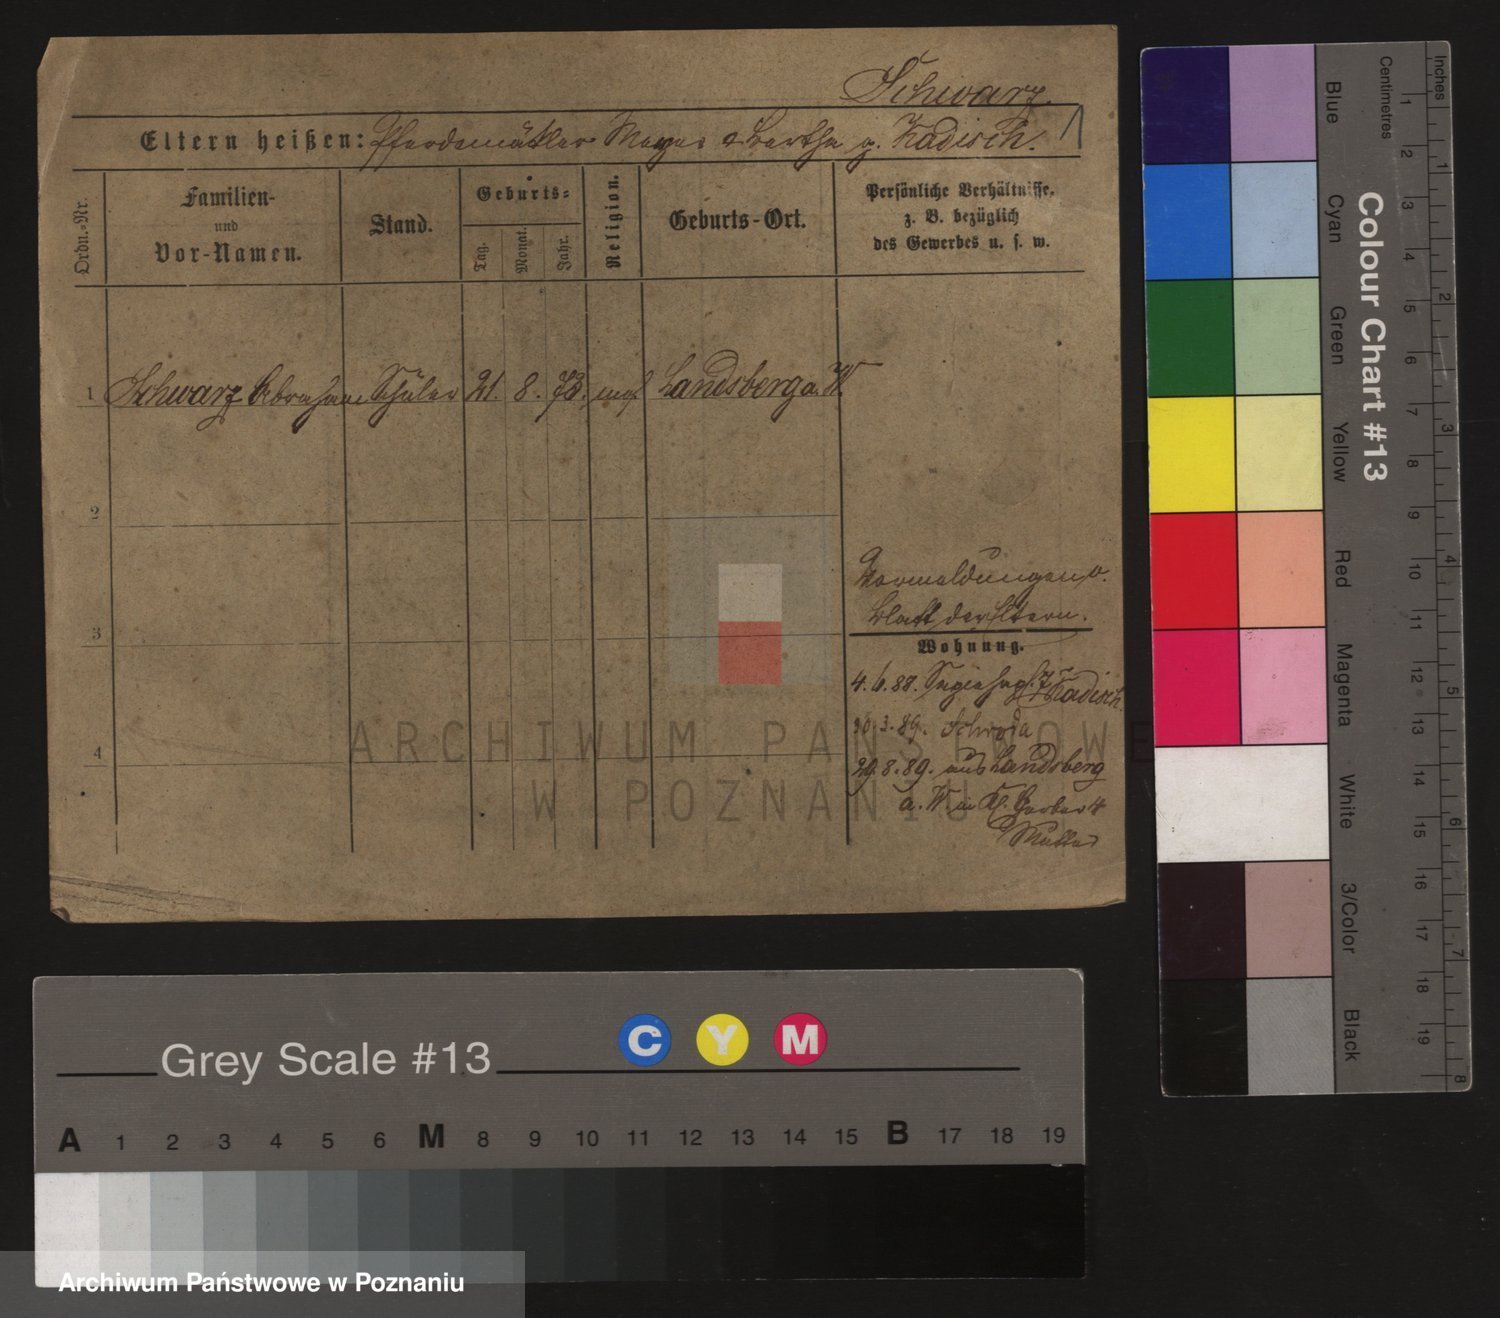 Schwarz.
Eltern heißen: Pferdemäkler Meyer & Bertha g. Zadisch.
Ordn.-Nr.
Familien-
und
Vor-Namen.
Stand.
Geburts-
Tag.
Monat.
Jahr.
Religion.
Geburts-Ort.
Persönliche Verhältnisse.
z. B. bezüglich
des Gewerbes u. s. w.
1 Schwarz Abraham Schüler 21. 8. 73. mos. Landsberg a. W.
2
3
4
Vormeldungen
Blatt der Eltern.
Wohnung.
4. 6. 88. Zadisch.
30. 3. 89. Schroda
29. 8. 89. aus Landsberg
a. W. Kl. Gerber 4
Müller
ARCHIWUM PAŃSTWOWE
W POZNANIU
Blue
Cyan
Green
Yellow
Red
Magenta
White
3/Color
Black
Colour Chart #13
Centimetres
1 2 3 4 5 6 7 8 9 10 11 12 13 14 15 16 17 18 19
Inches
1 2 3 4 5 6 7 8
Grey Scale #13
C Y M
A 1 2 3 4 5 6 M 8 9 10 11 12 13 14 15 B 17 18 19
Archiwum Państwowe w Poznaniu